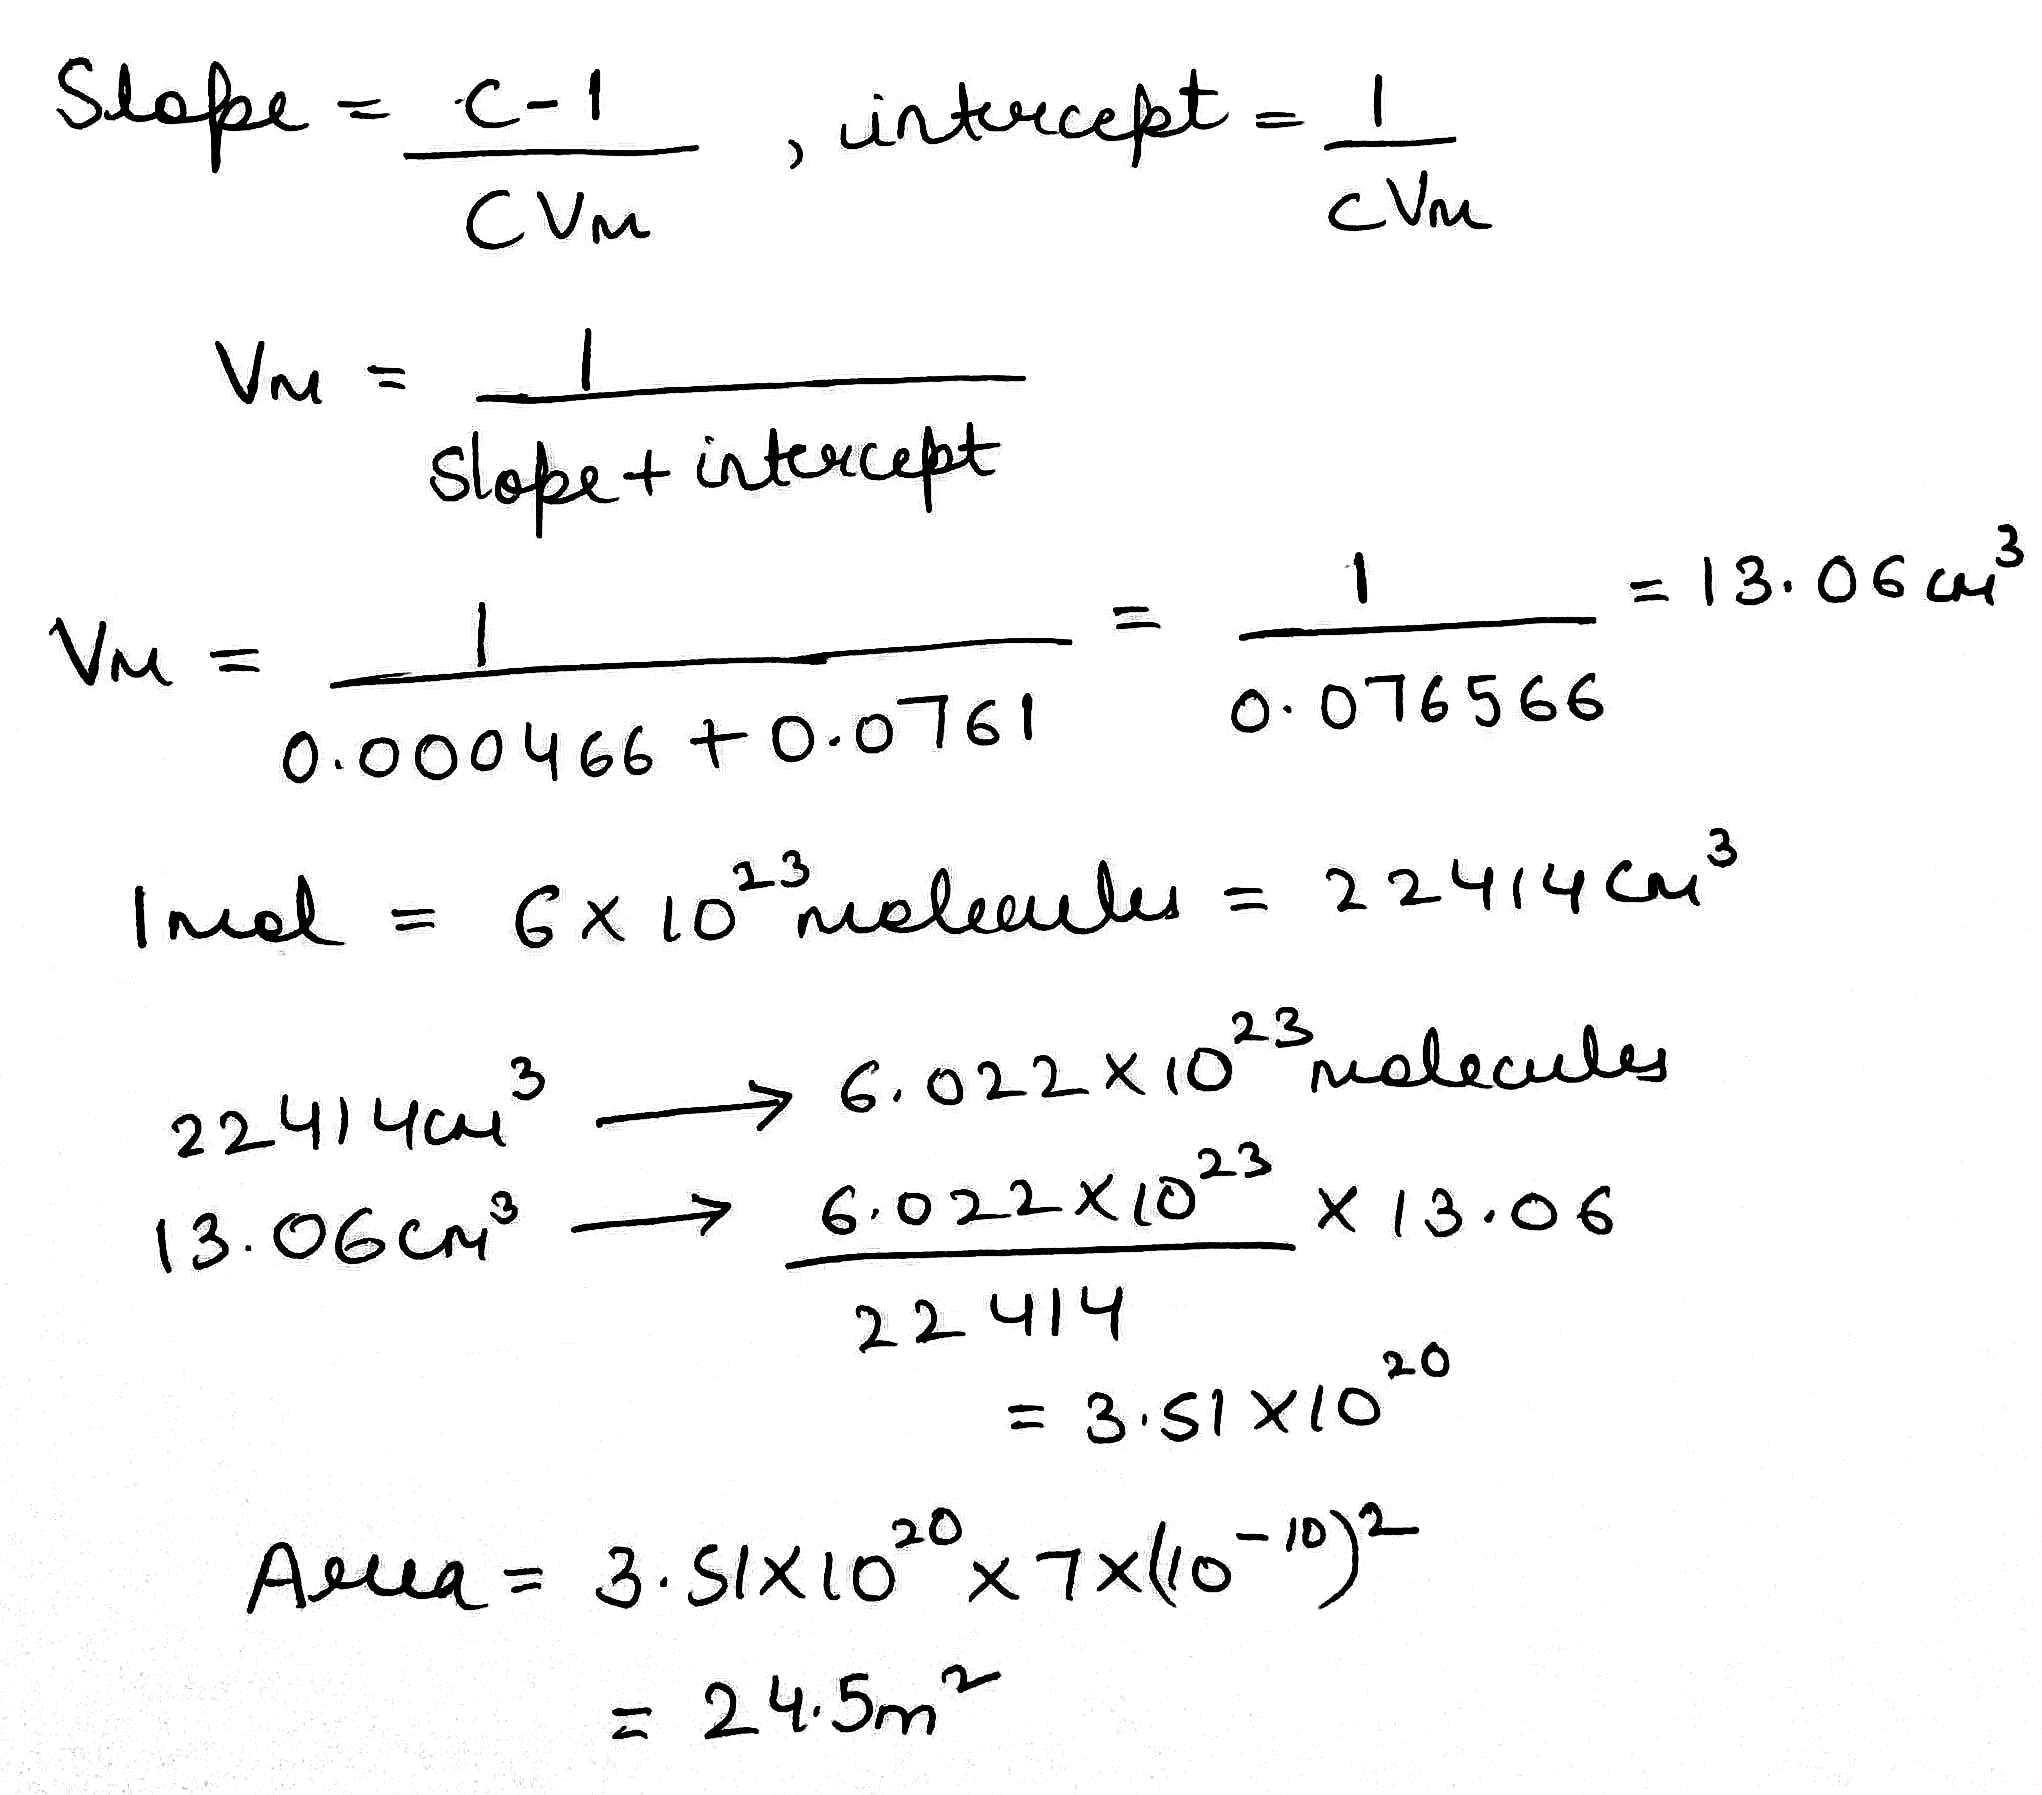 Slope = C-1 / CVm , intercept = 1 / CVm
Vm = 1 / Slope + intercept
Vm = 1 / 0.000466 + 0.0761 = 1 / 0.076566 = 13.06 cm³
1mol = 6 × 10²³ molecules = 22414 cm³
22414cm³ → 6.022 × 10²³ molecules
13.06cm³ → 6.022 × 10²³ / 22414 × 13.06
= 3.51 × 10²⁰
Area = 3.51 × 10²⁰ × 7 × (10⁻¹⁰)²
= 24.5m²